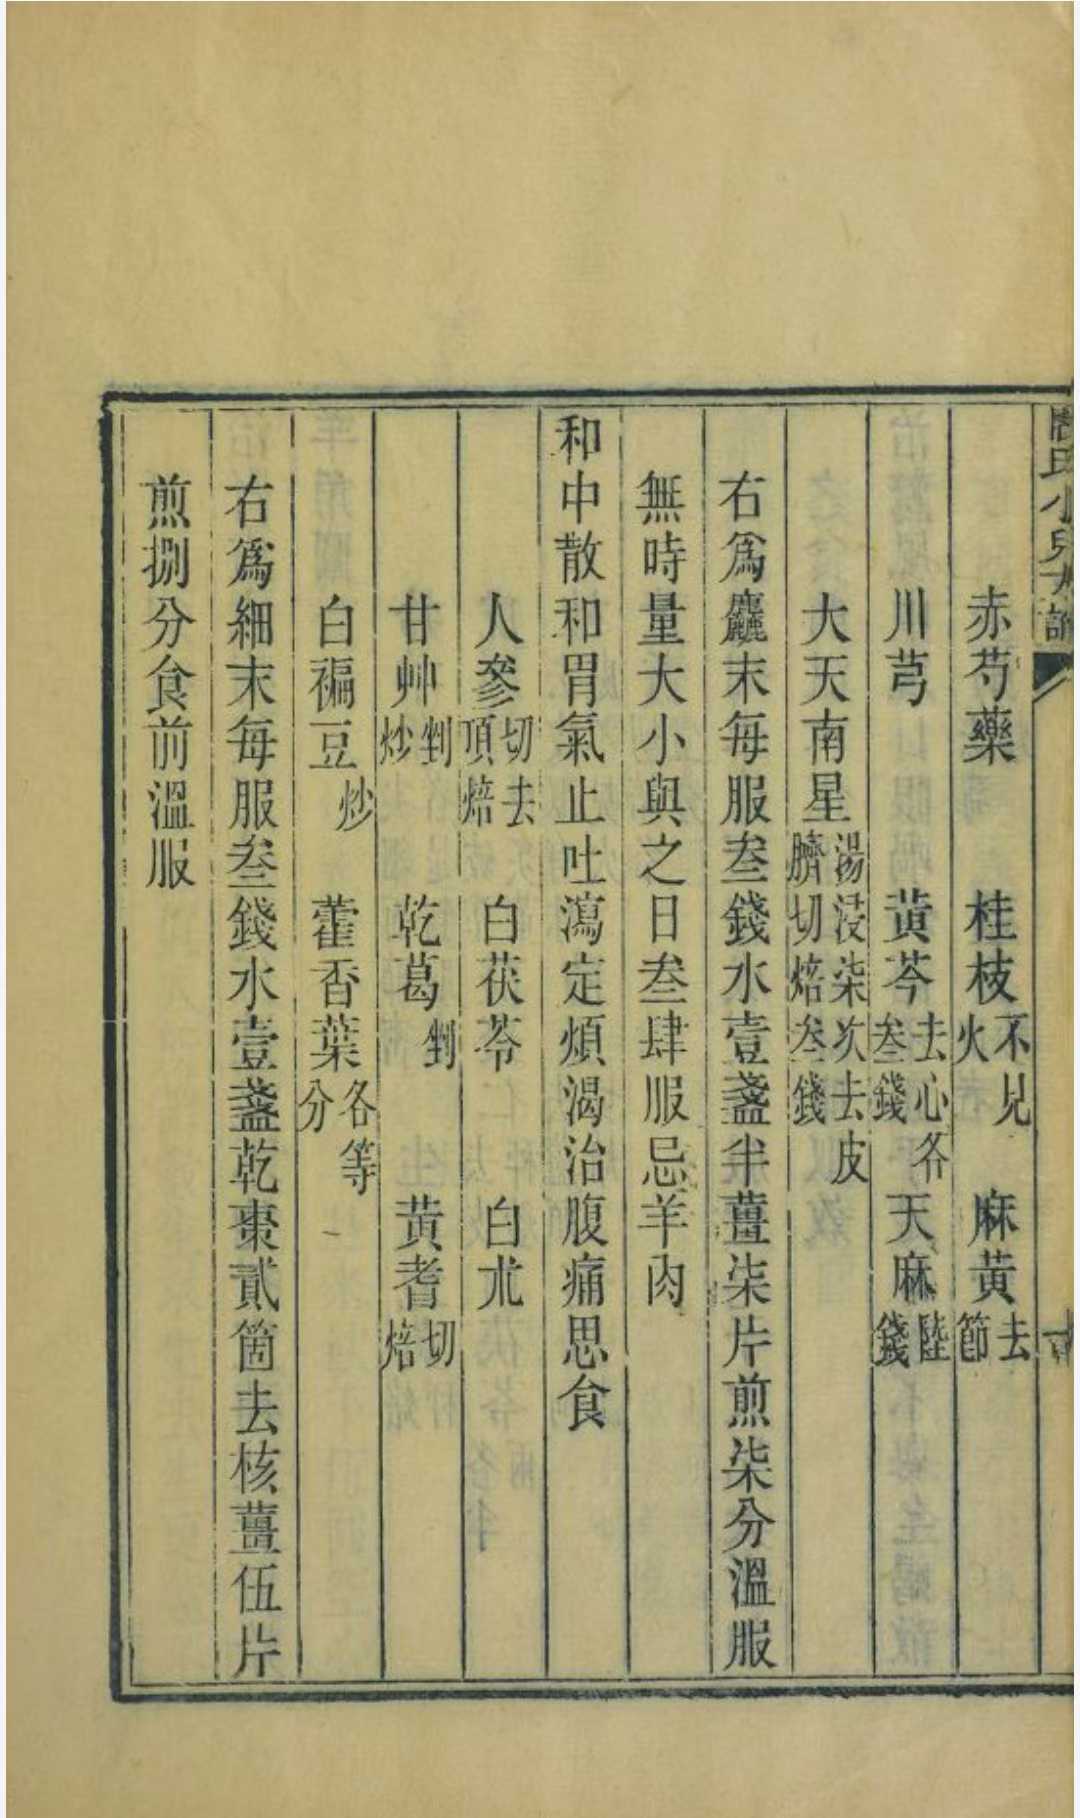 閻氏小兒方論
赤芍藥 桂枝不見火 麻黃去節
川芎 黃芩去心各叁錢 天麻陸錢
大天南星湯浸柒次去皮臍切焙叁錢
右爲麤末每服叁錢水壹盞半薑柒片煎柒分溫服
無時量大小與之日叁肆服忌羊肉
和中散和胃氣止吐瀉定煩渴治腹痛思食
人參切去頂焙 白茯苓 白朮
甘艸剉炒 乾葛剉 黃耆切焙
白藊豆炒 藿香葉各等分
右爲細末每服叁錢水壹盞乾棗貳箇去核薑伍片
煎捌分食前溫服